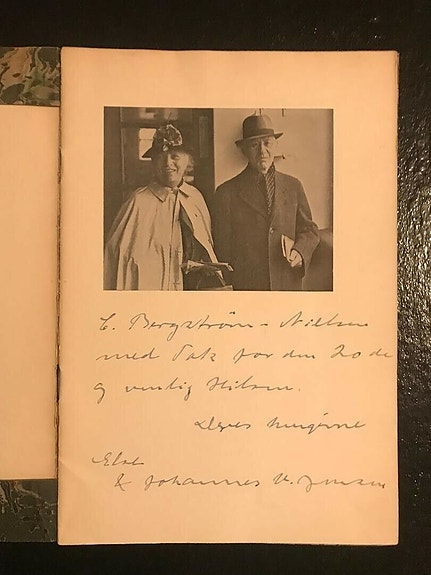 C. Bergström-Nielsen
med Tak for den 20 de
og venlig Hilsen.
Deres hengivne
Else
& Johannes V. Jensen